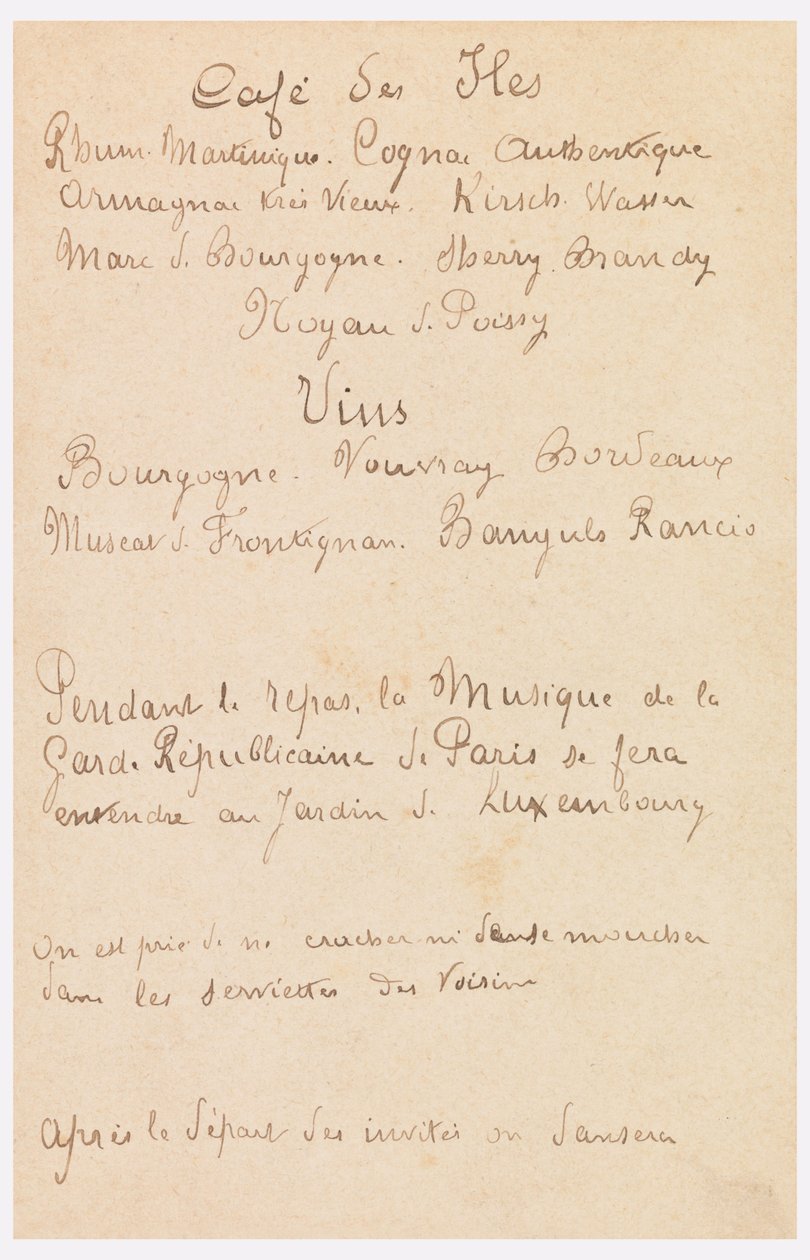 Café des Iles
Rhum. Martinique. Cognac Authentique
Armagnac très Vieux. Kirsch. Wasser
Marc de Bourgogne. Sherry. Brandy
Noyau de Poissy
Vins
Bourgogne. Vouvray Bordeaux
Muscat de Frontignan. Banyuls Rancio
Pendant le repas, la Musique de la
Garde Républicaine de Paris se fera
entendre au Jardin de Luxembourg
On est prié de ne cracher ni de se moucher
dans les serviettes des Voisins
Après le départ des invités on dansera